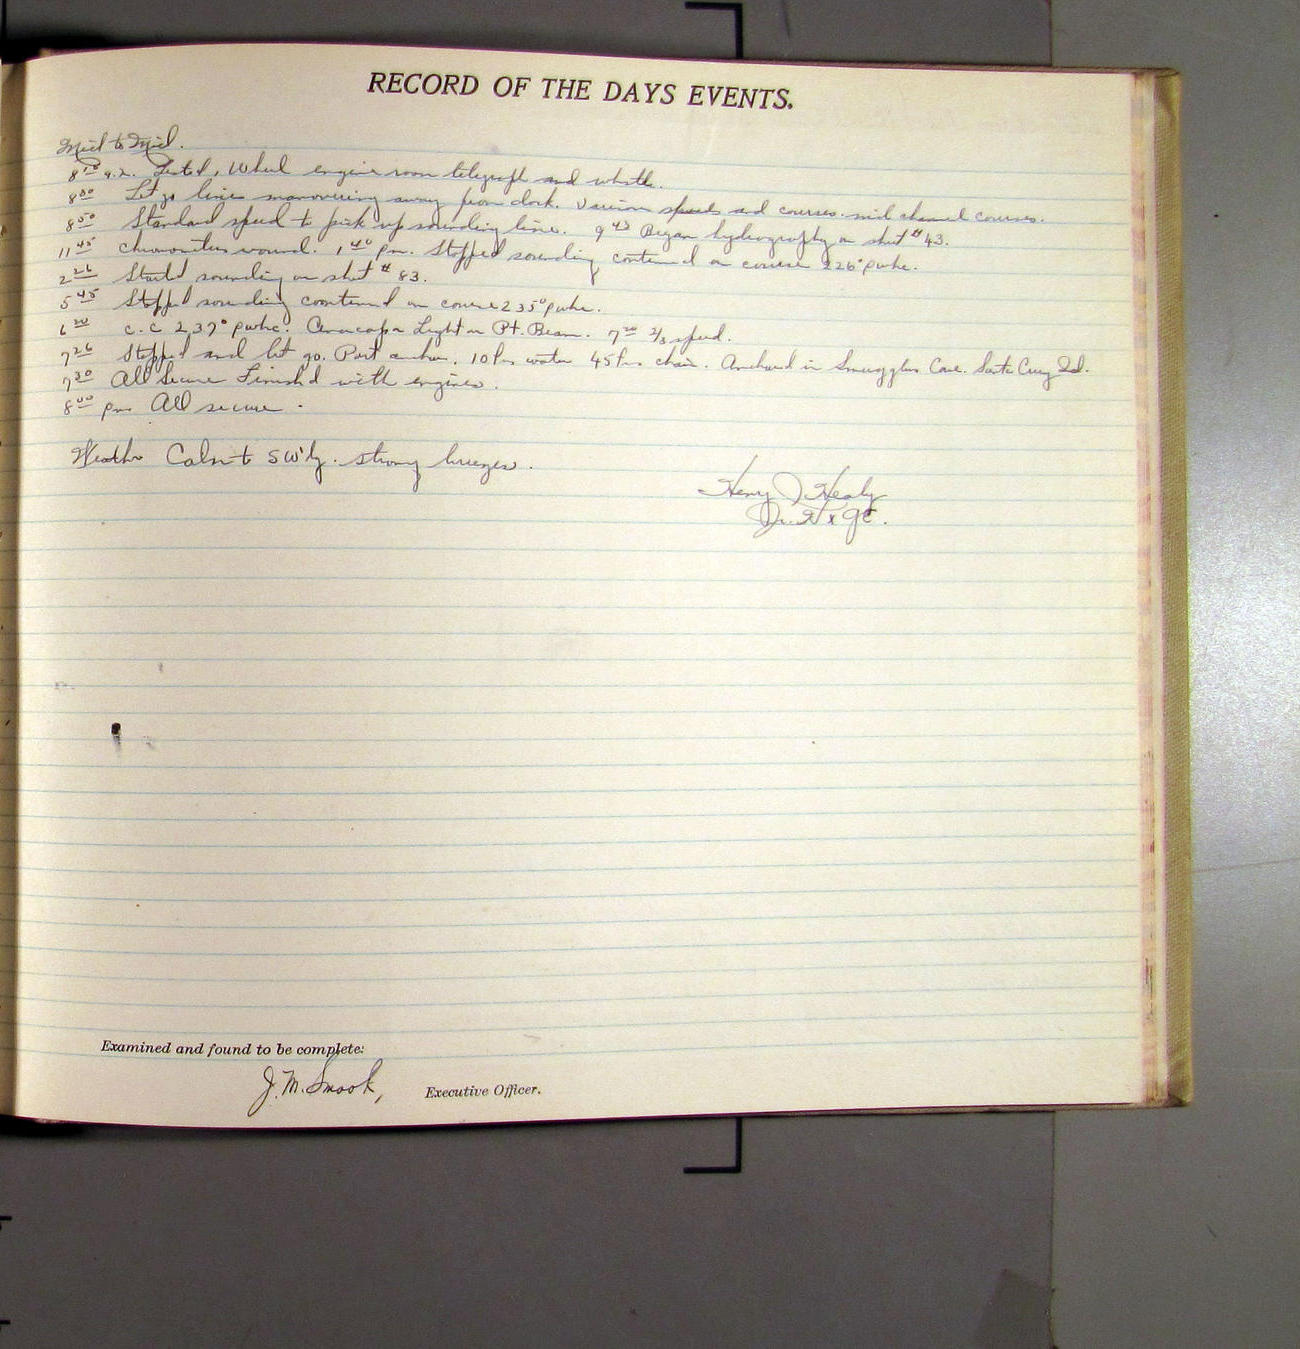 RECORD OF THE DAYS EVENTS.
Mid to Mid.
8 10 a.m. Tested, Wheel engine room telegraph and whistle.
8 30 Let go lines manouvering away from dock. Various speeds and courses. mid channel courses.
8 50 Standard speed to pick up sounding line. 9 43 Began hydrography on sheet # 43.
11 45 Chronometers wound. 1 40 pm. Stopped sounding continued on course 226° pwhc.
2 26 Started sounding on sheet # 83.
5 45 Stopped sounding continued on course 235° pwhc.
6 20 c.c 237° pwhc. Anacapa Light on Pt. Beam. 7 20 2/3 speed.
7 26 Stopped and let go. Port anchor. 10 fms water 45 fms chain. Anchored in Smugglers Cove. Santa Cruz Id.
7 30 All Secure Finished with engines.
8 00 pm All secure.
Weather Calm to SW'ly. strong breezes.
Henry J Healy
Jr. H & GE.
Examined and found to be complete:
J. M. Smook, Executive Officer.